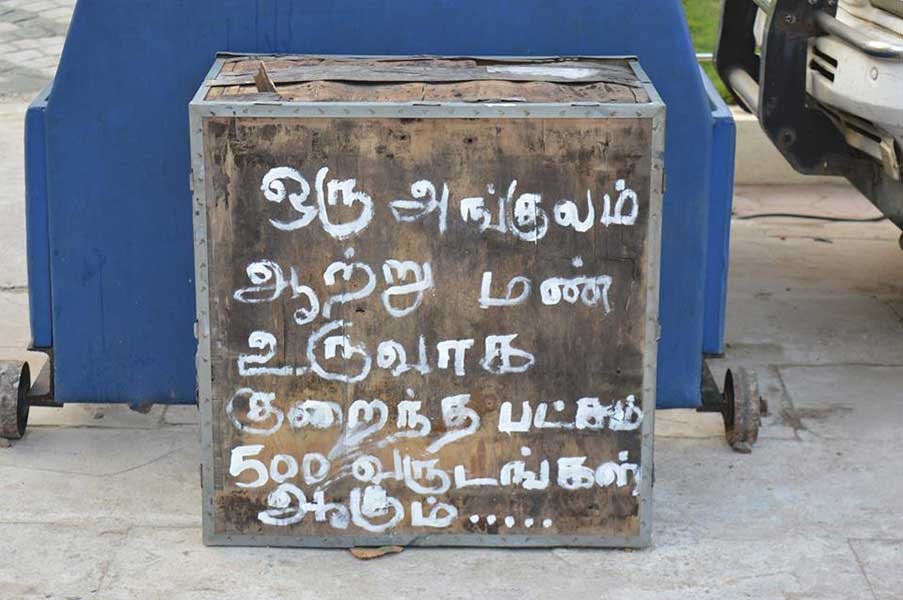 ஒரு அங்குலம்
ஆற்று மண்
உருவாக
குறைந்த பட்சம்
500 வருடங்கள்
ஆகும்.....